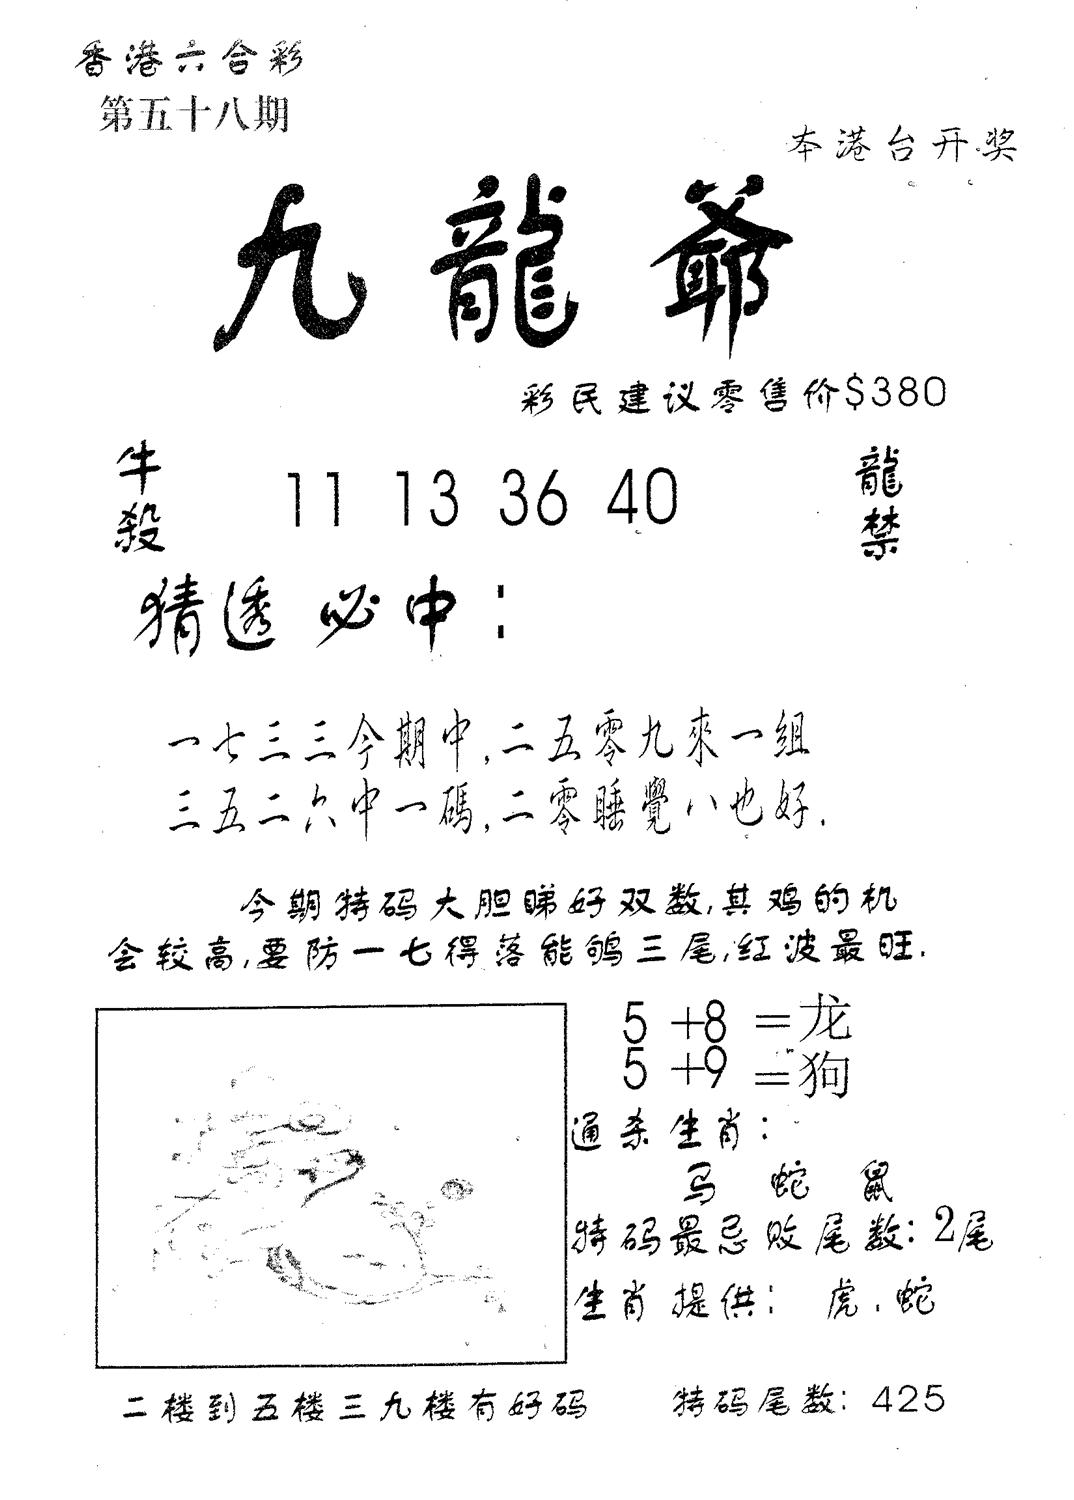 香港六合彩
第五十八期
本港台开奖
九龍爺
彩民建议零售价$380
牛殺
11 13 36 40
龍禁
猜透必中：
一七三三今期中,二五零九來一組
三五二六中一碼,二零睡覺八也好.
今期特码大胆睇好双数,其鸡的机
会较高,要防一七得落能鸲三尾,红波最旺.
5+8=龙
5+9=狗
通杀生肖：
马 蛇 鼠
特码最忌败尾数：2尾
生肖提供： 虎.蛇
二楼到五楼三九楼有好码
特码尾数：425